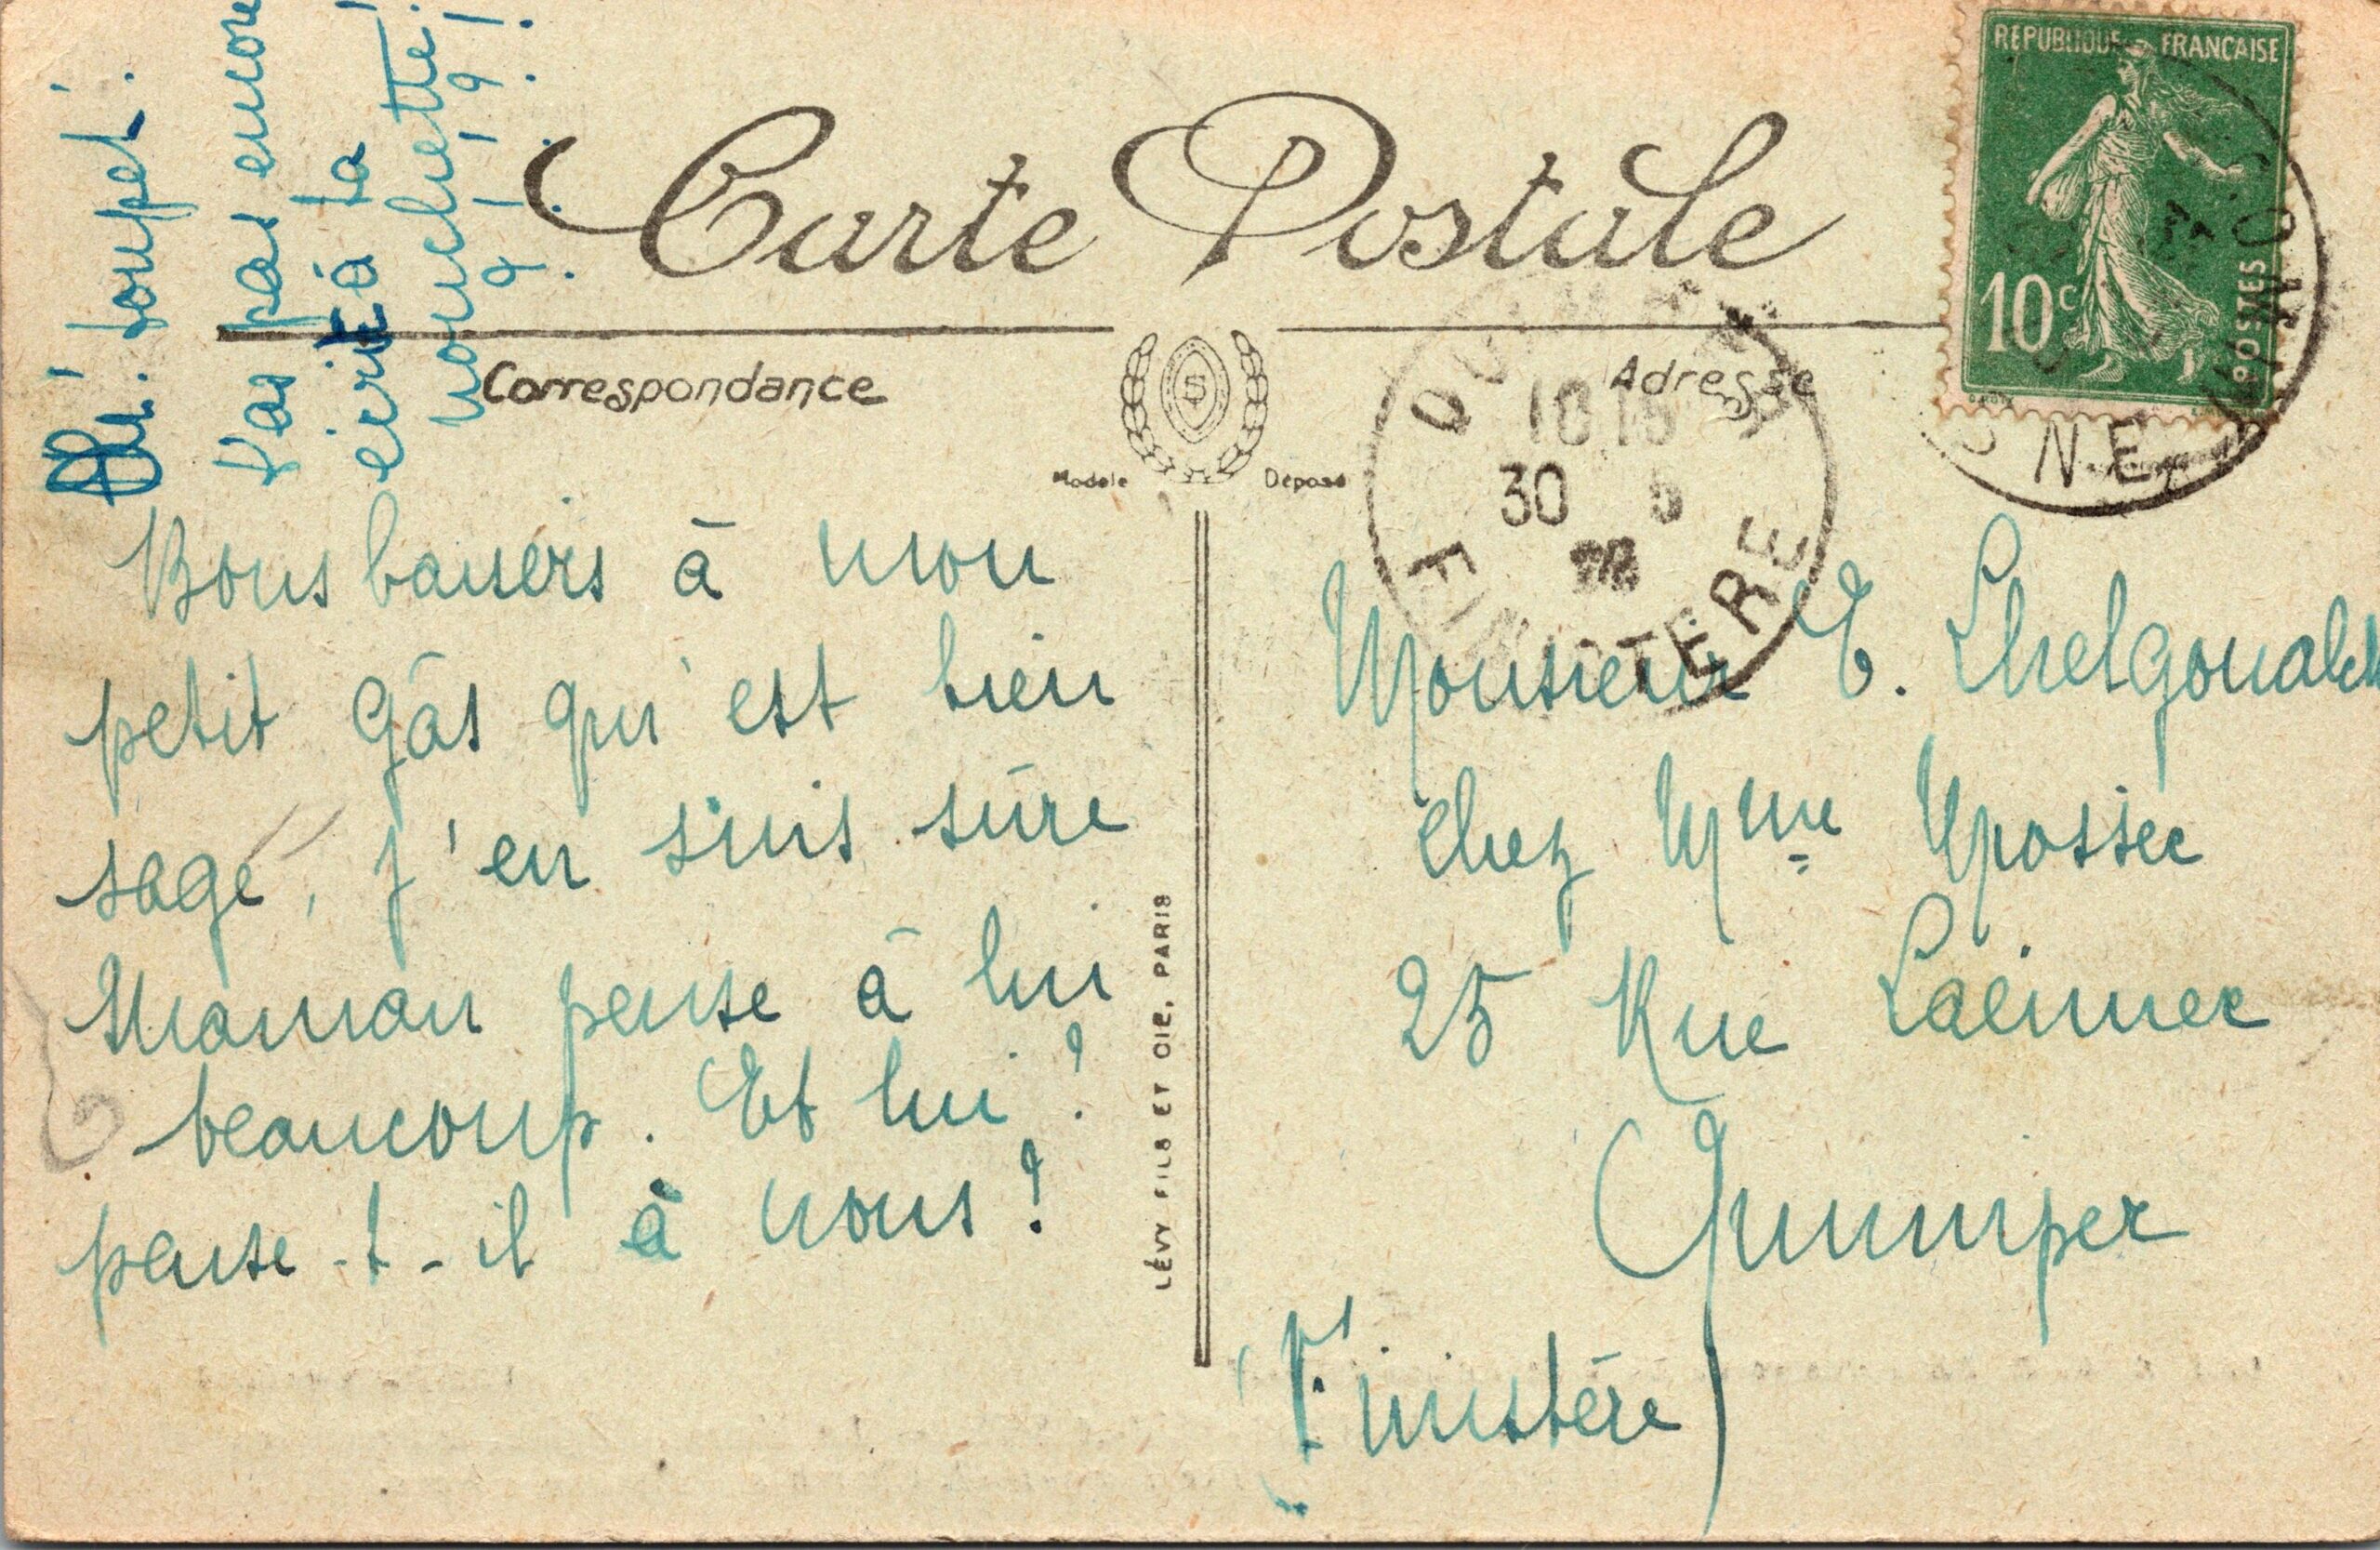 RÉPUBLIQUE FRANÇAISE
10c
POSTES
Carte Postale
Correspondance
Adresse
Modèle Déposé
QUIMPER
10 15
30 5
FINISTERE
toupet!
T'as pas encore
écrit à ta
nouchette!
? ! ? !
Bons baisers à mon
petit gâs qui est bien
sage, j'en suis sûre
Maman pense à lui
beaucoup. Et lui ?
pense-t-il à nous ?
LÉVY FILS ET CIE, PARIS
Monsieur E.
chez Mme
25 Rue Laënnec
Quimper
(Finistère)